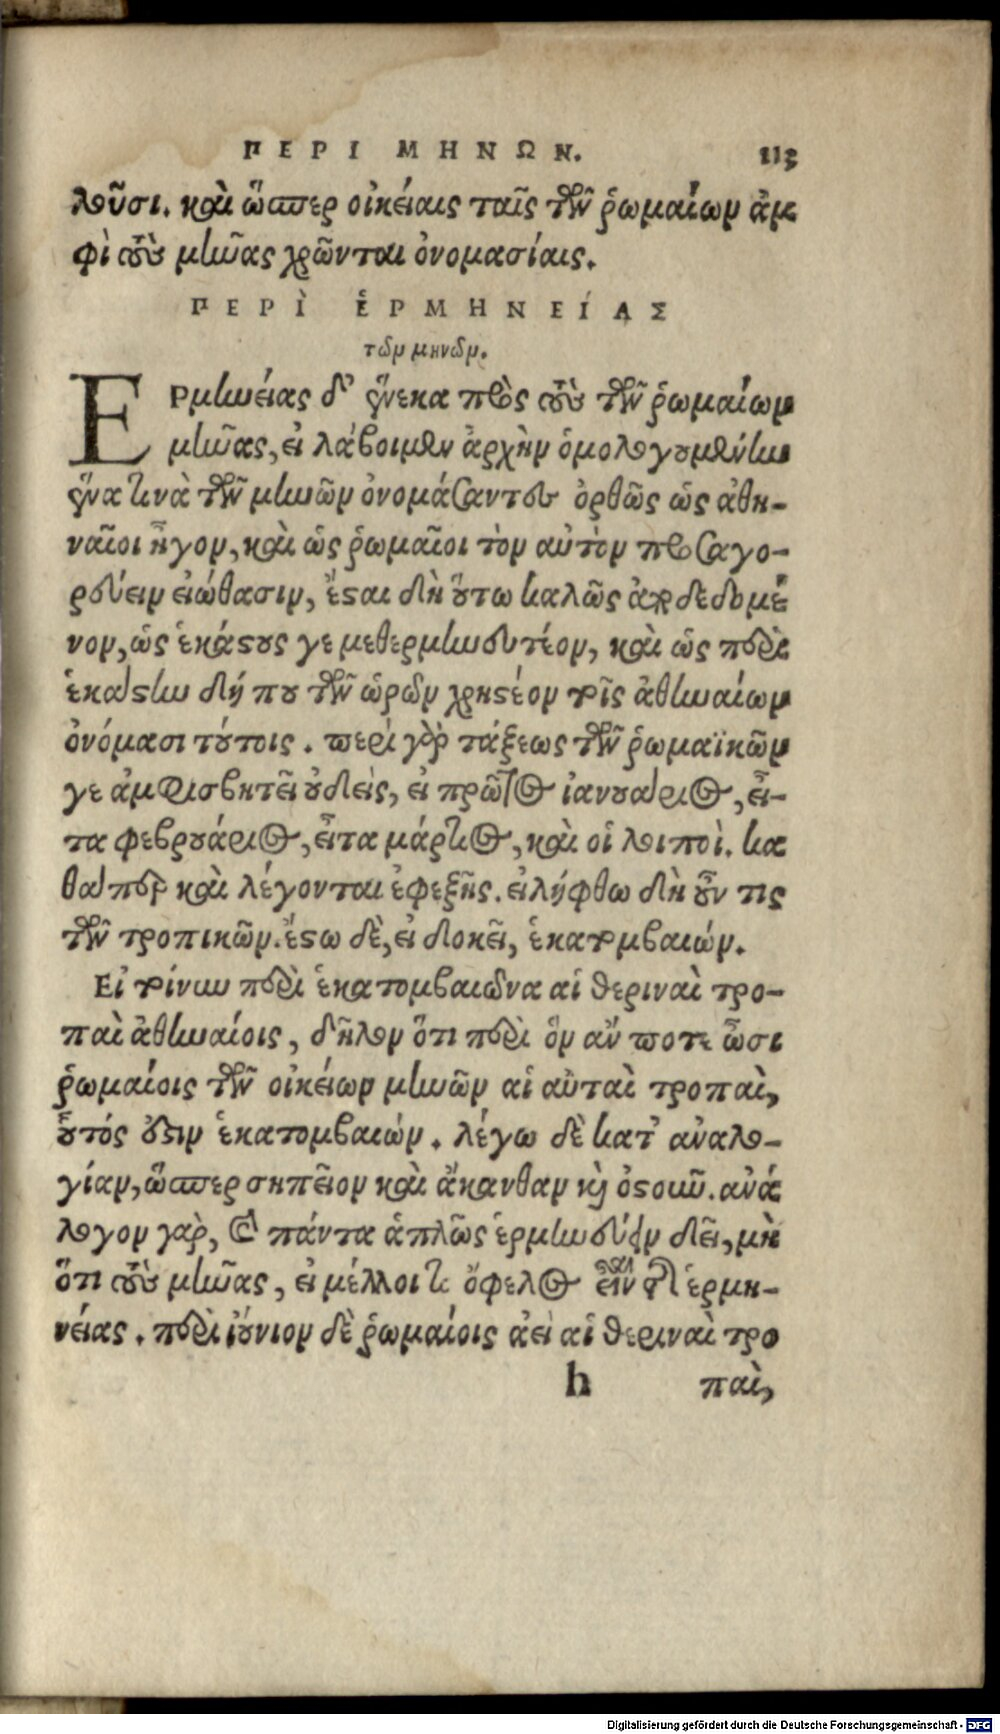 ΠΕΡΙ ΜΗΝΩΝ. 113
λοῦσι. καὶ ὥσπερ οἰκείαις ταῖς τῶν ῥωμαίων ἀμ
φὶ τοὺς μῆνας χρῶνται ὀνομασίαις.
ΠΕΡῚ ἙΡΜΗΝΕΊΑΣ
τῶν μηνῶν.
ΕΡμηνείας δ' ἕνεκα πρὸς τοὺς τῶν ῥωμαίων
μῆνας, εἰ λάβοιμεν ἀρχὴν ὁμολογουμένην
ἕνα τινὰ τῶν μηνῶν ὀνομάσαντες ὀρθῶς ὡς ἀθη-
ναῖοι ἦγον, καὶ ὡς ῥωμαῖοι τὸν αὐτὸν προσαγο-
ρεύειν εἰώθασιν, ἔσται δὴ οὕτω καλῶς παραδεδομέ
νον, ὡς ἑκάστους γε μεθερμηνευτέον, καὶ ὡς περὶ
ἑκάστην δή που τῶν ὡρῶν χρηστέον τοῖς ἀθηναίων
ὀνόμασι τούτοις. περὶ γὰρ τάξεως τῶν ῥωμαϊκῶν
γε ἀμφισβητεῖ οὐδεὶς, εἰ πρῶτος ἰανουάριος, εἶ-
τα φεβρουάριος, εἶτα μάρτιος, καὶ οἱ λοιποὶ. κα
θάπερ καὶ λέγονται ἐφεξῆς. εἰλήφθω δὴ οὖν τις
τῶν τροπικῶν. ἔστω δὲ, εἰ δοκεῖ, ἑκατομβαιών.
Εἰ τοίνυν περὶ ἑκατομβαιῶνα αἱ θεριναὶ τρο-
παὶ ἀθηναίοις, δῆλον ὅτι περὶ ὃν ἄν ποτε ὦσι
ῥωμαίοις τῶν οἰκείων μηνῶν αἱ αὐταὶ τροπαὶ,
οὗτός ἐστιν ἑκατομβαιών. λέγω δὲ κατ' ἀναλο-
γίαν, ὥσπερ σημεῖον καὶ ἄκανθαν καὶ ὀστοῦν. ἀνά
λογον γὰρ, καὶ πάντα ἁπλῶς ἑρμηνεύειν δεῖ, μὴ
ὅτι τοὺς μῆνας, εἰ μέλλοι τι ὄφελος εἶναι τῆς ἑρμη-
νείας. περὶ ἰούνιον δὲ ῥωμαίοις ἀεὶ αἱ θεριναὶ τρο
h παὶ,
Digitalisierung gefördert durch die Deutsche Forschungsgemeinschaft - DFG